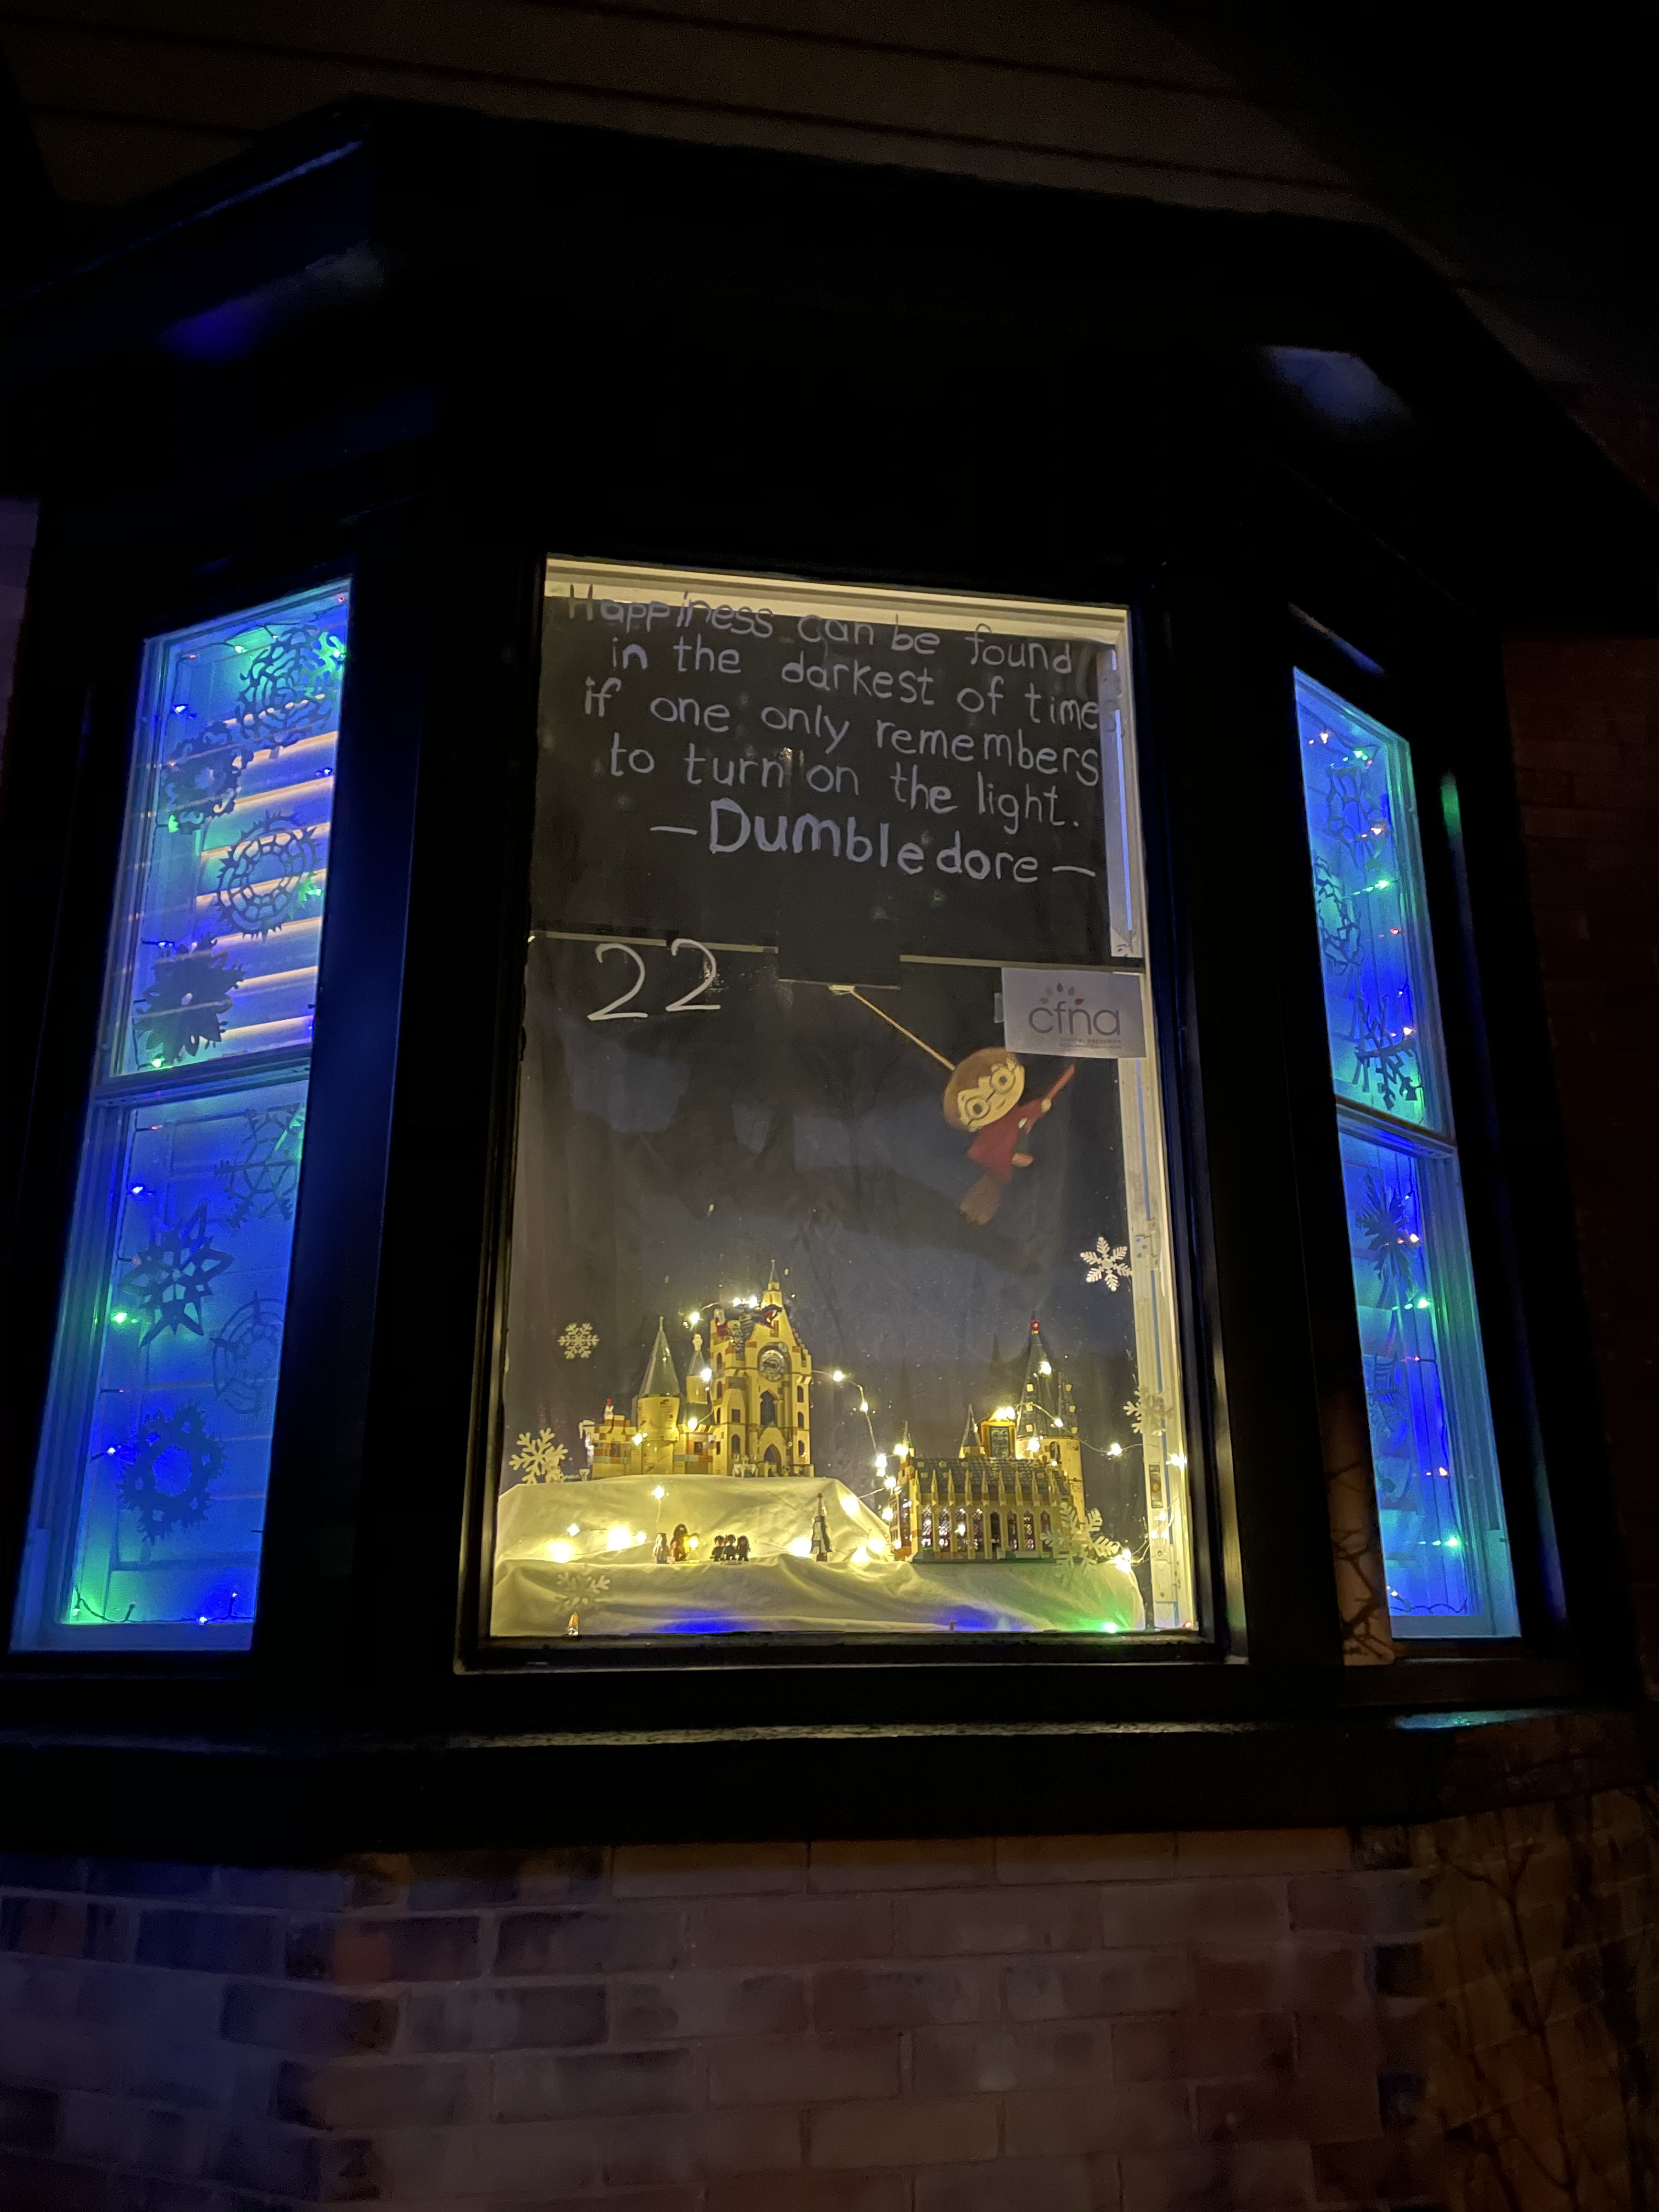 Happiness can be found
in the darkest of time
if one only remembers
to turn on the light.
—Dumbledore—
22
cfna